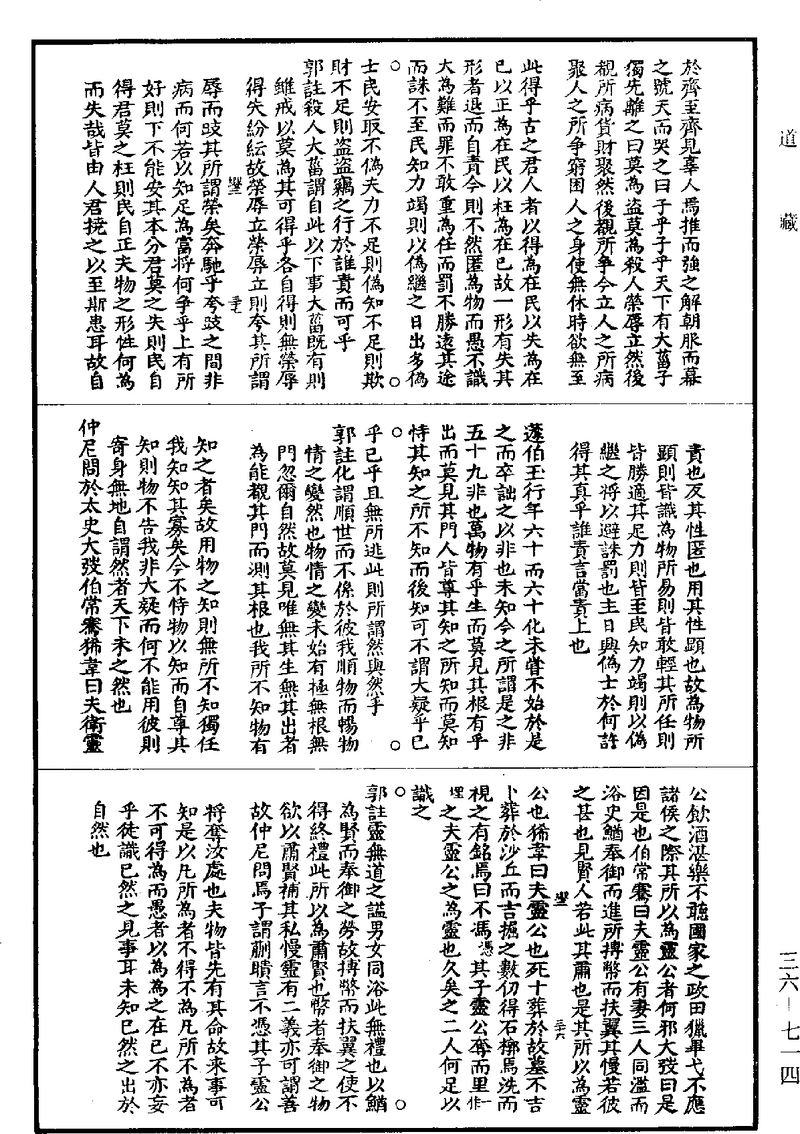 道藏
於齊至齊見辜人焉推而強之解朝服而幕
之號天而哭之曰子乎子乎天下有大菑子
獨先離之曰莫為盜莫為殺人榮辱立然後
覩所病貨財聚然後覩所爭今立人之所病
聚人之所爭窮困人之身使無休時欲無至
此得乎古之君人者以得為在民以失為在
已以正為在民以枉為在已故一形有失其
形者退而自責今則不然匿為物而愚不識
大為難而罪不敢重為任而罰不勝遠其途
而誅不至民知力竭則以偽繼之日出多偽
士民安取不偽夫力不足則偽知不足則欺
財不足則盜盜竊之行於誰責而可乎
郭註殺人大菑謂自此以下事大菑既有則
雖戒以莫為其可得乎各自得則無榮辱
得失紛紜故榮辱立榮辱立則夸其所謂
辱而跂其所謂榮矣奔馳乎夸跂之間非
病而何若以知足為富將何爭乎上有所
好則下不能安其本分君莫之失則民自
得君莫之枉則民自正夫物之形性何為
而失哉皆由人君撓之以至斯患耳故自
責也反其性匿也用其性顯也故為物所
顯則皆識為物所易則皆敢輕其所任則
皆勝適其足力則皆至民知力竭則以偽
繼之將以避誅罰也主日興偽士於何許
得其真乎誰責言當責上也
蘧伯玉行年六十而六十化未嘗不始於是
之而卒詘之以非也未知今之所謂是之非
五十九非也萬物有乎生而莫見其根有乎
出而莫見其門人皆尊其知之所知而莫知
恃其知之所不知而後知可不謂大疑乎已
乎已乎且無所逃此則所謂然與然乎
郭註化謂順世而不係於彼我順物而暢物
情之變然也物情之變未始有極無根無
門忽爾自然故莫見唯無其生無其出者
為能覩其門而測其根也我所不知物有
知之者矣故用物之知則無所不知獨任
我知知其寡矣今不恃物以知而自尊其
知則物不告我非大疑而何不能用彼則
寄身無地自謂然者天下未之然也
仲尼問於太史大弢伯常騫狶韋曰夫衛靈
公飲酒湛樂不聽國家之政田獵畢弋不應
諸侯之際其所以為靈公者何邪大弢曰是
因是也伯常騫曰夫靈公有妻三人同濫而
浴史鰌奉御而進所搏幣而扶翼其慢若彼
之甚也見賢人若此其肅也是其所以為靈
公也狶韋曰夫靈公也死卜葬於故墓不吉
卜葬於沙丘而吉掘之數仞得石槨焉洗而
視之有銘焉曰不馮憑其子靈公奪而里一作
埋之夫靈公之為靈也久矣之二人何足以
識之
郭註靈無道之謚男女同浴此無禮也以鰌
為賢而奉御之勞故搏幣而扶翼之使不
得終禮此所以為肅賢也幣者奉御之物
欲以肅賢補其私慢靈有二義亦可謂善
故仲尼問焉子謂蒯聵言不憑其子靈公
將奪汝處也夫物皆先有其命故來事可
知是以凡所為者不得不為凡所不為者
不可得為而愚者以為為之在已不亦妄
乎徒識已然之見事耳未知已然之出於
自然也
三六—七一四